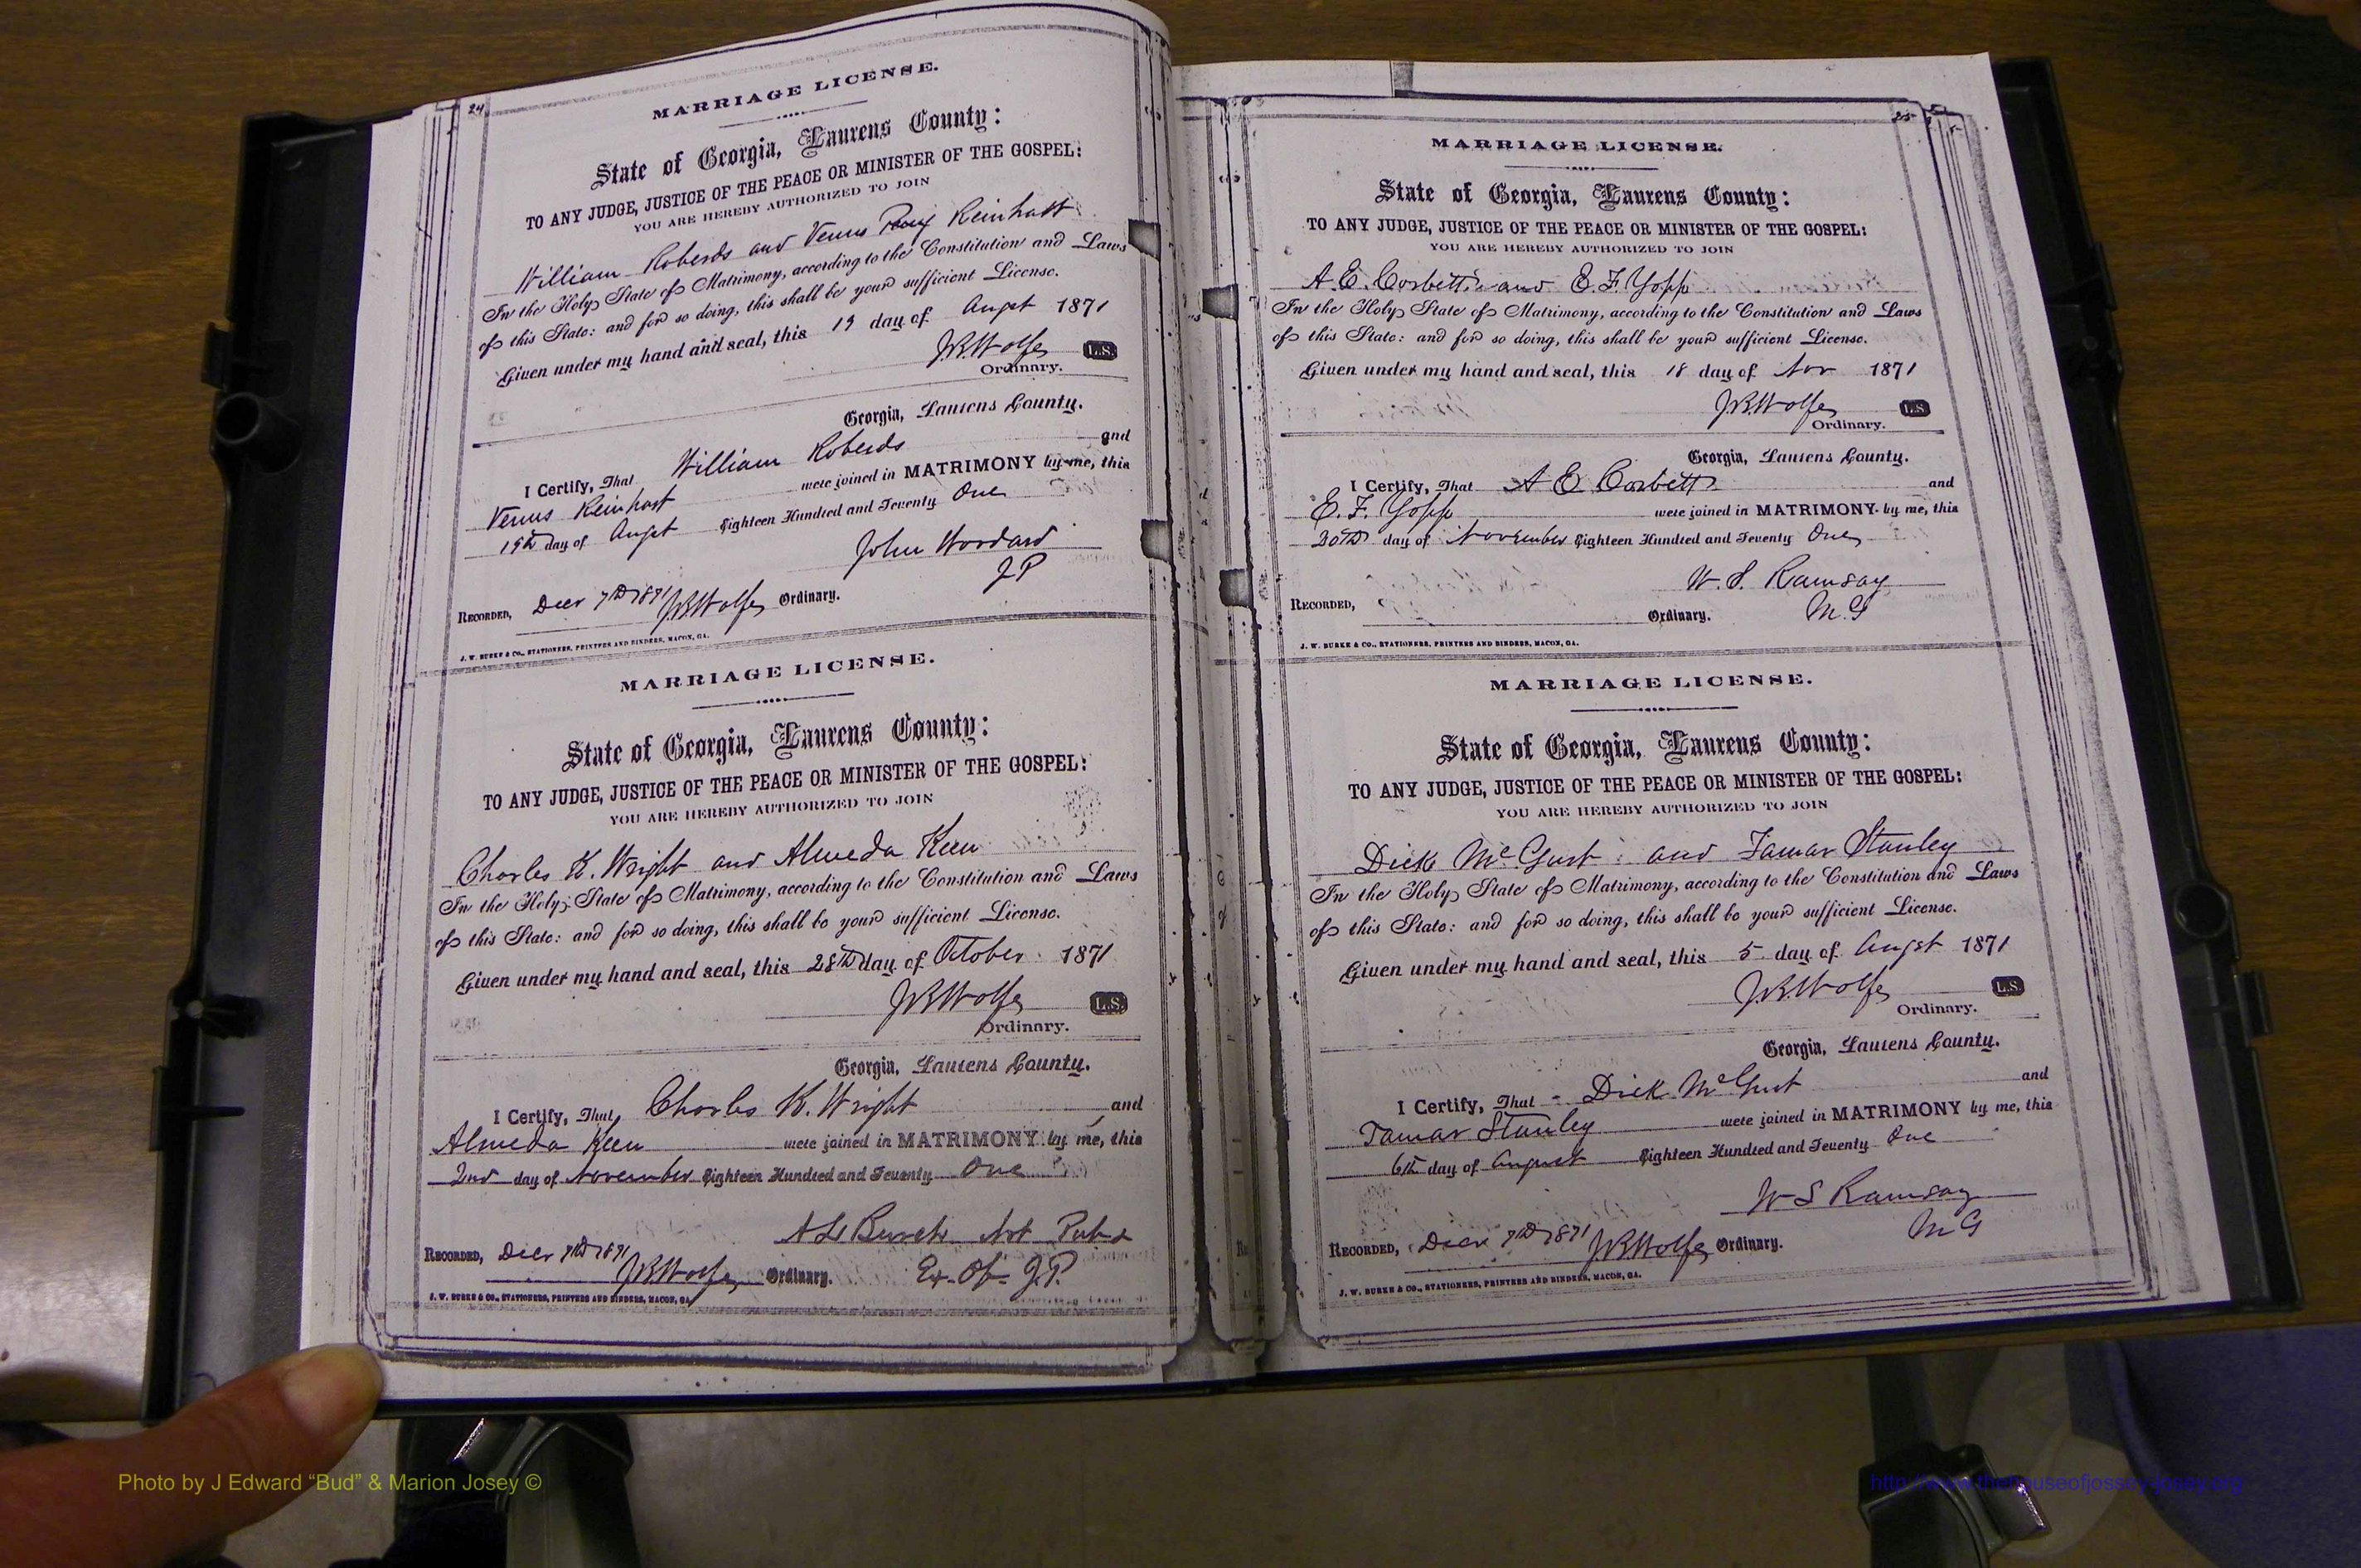 24
MARRIAGE LICENSE.
State of Georgia, Laurens County:
TO ANY JUDGE, JUSTICE OF THE PEACE OR MINISTER OF THE GOSPEL:
YOU ARE HEREBY AUTHORIZED TO JOIN
William Roberds and Venus Reinhart
In the Holy State of Matrimony, according to the Constitution and Laws
of this State: and for so doing, this shall be your sufficient License.
Given under my hand and seal, this 19 day of Augst 1871
JBWolfe L.S.
Ordinary.
Georgia, Laurens County.
I Certify, That William Roberds and
Venus Reinhart were joined in MATRIMONY by me, this
19th day of Augst Eighteen Hundred and Seventy One
John Woodard
JP
RECORDED, Decr 7th 1871 JBWolfe Ordinary.
J. W. BURKE & CO., STATIONERS, PRINTERS AND BINDERS, MACON, GA.
MARRIAGE LICENSE.
State of Georgia, Laurens County:
TO ANY JUDGE, JUSTICE OF THE PEACE OR MINISTER OF THE GOSPEL:
YOU ARE HEREBY AUTHORIZED TO JOIN
Charles K. Wright and Almeda Keen
In the Holy State of Matrimony, according to the Constitution and Laws
of this State: and for so doing, this shall be your sufficient License.
Given under my hand and seal, this 28th day of October 1871
JBWolfe L.S.
Ordinary.
Georgia, Laurens County.
I Certify, That Charles K. Wright and
Almeda Keen were joined in MATRIMONY by me, this
2nd day of November Eighteen Hundred and Seventy One
Burch Not Pub &
Ex. Of. J.P.
RECORDED, Decr 7th 1871 JBWolfe Ordinary.
J. W. BURKE & CO., STATIONERS, PRINTERS AND BINDERS, MACON, GA.
25
MARRIAGE LICENSE.
State of Georgia, Laurens County:
TO ANY JUDGE, JUSTICE OF THE PEACE OR MINISTER OF THE GOSPEL:
YOU ARE HEREBY AUTHORIZED TO JOIN
A. E. Corbett and E. F. Yopp
In the Holy State of Matrimony, according to the Constitution and Laws
of this State: and for so doing, this shall be your sufficient License.
Given under my hand and seal, this 18 day of Nov 1871
JBWolfe L.S.
Ordinary.
Georgia, Laurens County.
I Certify, That A E Corbett and
E. F. Yopp were joined in MATRIMONY by me, this
30th day of November Eighteen Hundred and Seventy One
W. S. Ramsay
M.G
RECORDED, Ordinary.
J. W. BURKE & CO., STATIONERS, PRINTERS AND BINDERS, MACON, GA.
MARRIAGE LICENSE.
State of Georgia, Laurens County:
TO ANY JUDGE, JUSTICE OF THE PEACE OR MINISTER OF THE GOSPEL:
YOU ARE HEREBY AUTHORIZED TO JOIN
Dick and Tamar Stanley
In the Holy State of Matrimony, according to the Constitution and Laws
of this State: and for so doing, this shall be your sufficient License.
Given under my hand and seal, this 5 day of Augst 1871
JBWolfe L.S.
Ordinary.
Georgia, Laurens County.
I Certify, That Dick and
Tamar Stanley were joined in MATRIMONY by me, this
6th day of August Eighteen Hundred and Seventy One
W S Ramsay
MG
RECORDED, Decr 7th 1871 JBWolfe Ordinary.
J. W. BURKE & CO., STATIONERS, PRINTERS AND BINDERS, MACON, GA.
Photo by J Edward “Bud” & Marion Josey ©
http://www.thehouseofjossey-josey.org